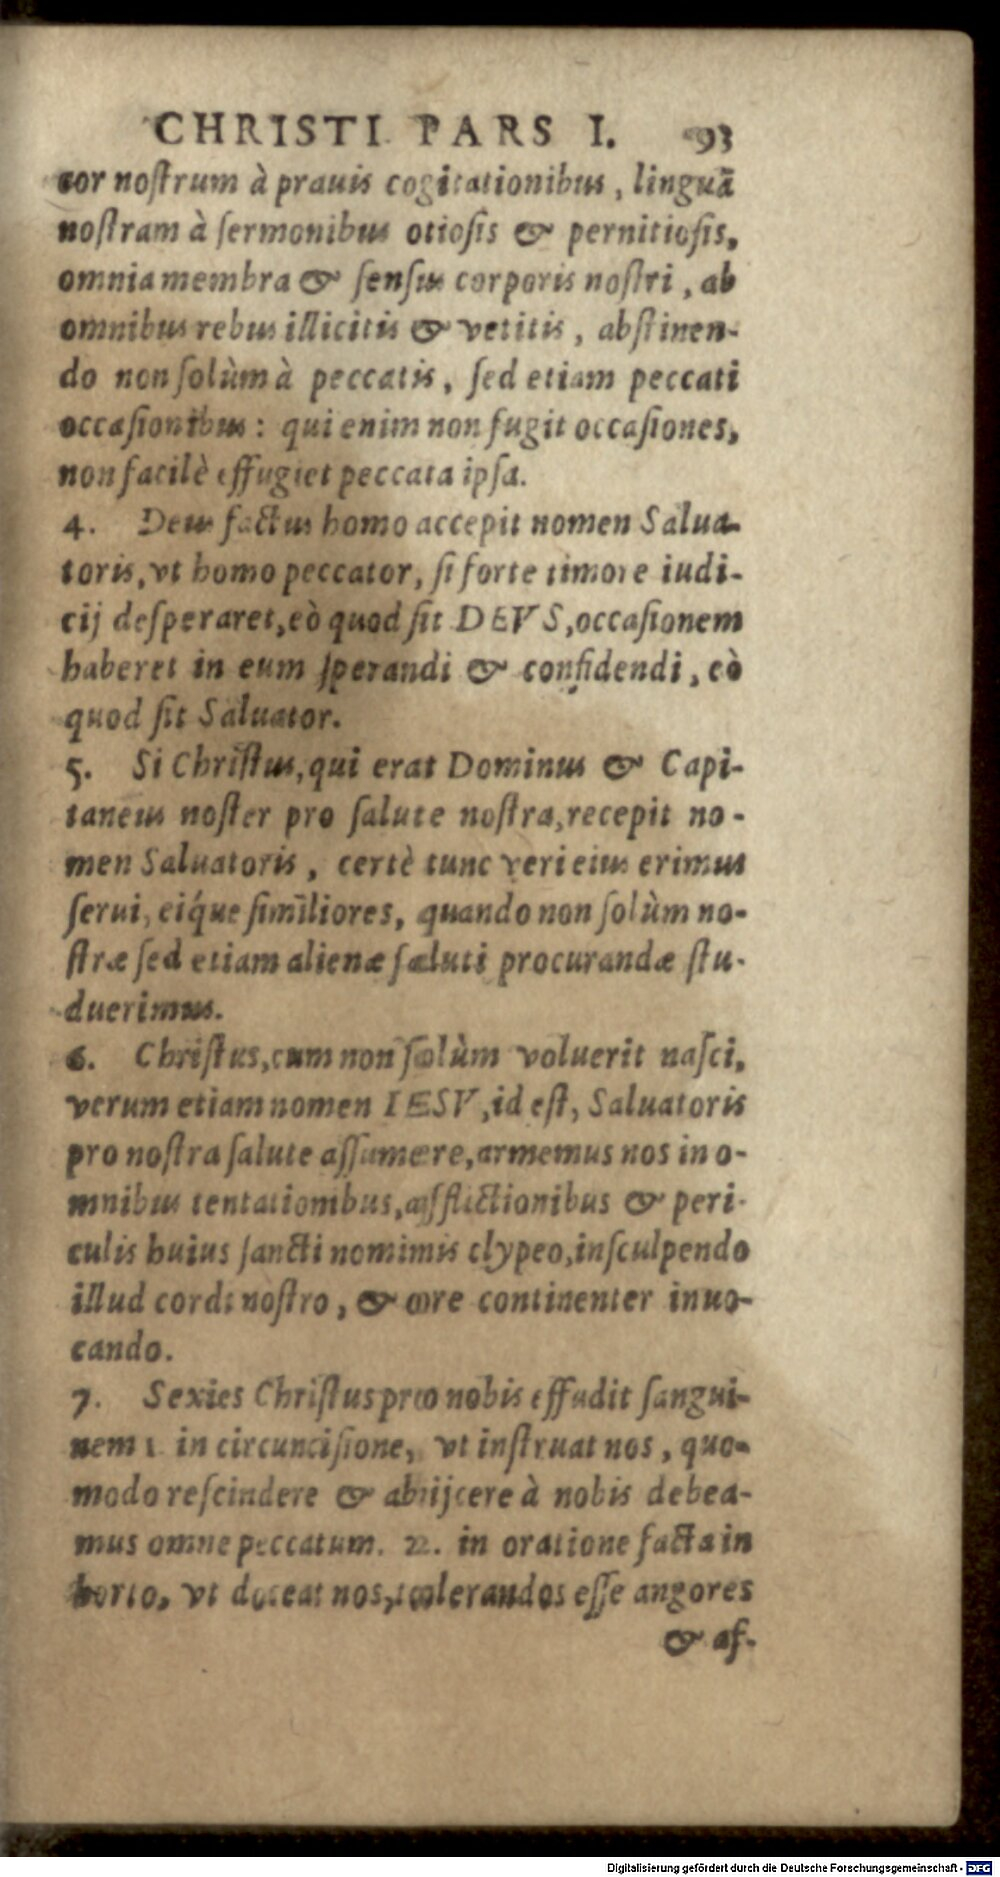 CHRISTI PARS I. 93
cor noſtrum à prauis cogitationibus, linguā
noſtram à ſermonibus otioſis & pernitioſis,
omnia membra & ſenſus corporis noſtri, ab
omnibus rebus illicitis & vetitis, abſtinen-
do non ſolùm à peccatis, ſed etiam peccati
occaſionibus: qui enim non fugit occaſiones,
non facilè effugiet peccata ipſa.
4. Deus factus homo accepit nomen Salua-
toris, vt homo peccator, ſi forte timore iudi-
cij deſperaret, eò quod ſit DEVS, occaſionem
haberet in eum ſperandi & confidendi, eò
quod ſit Saluator.
5. Si Chriſtus, qui erat Dominus & Capi-
taneus noſter pro ſalute noſtra, recepit no-
men Saluatoris, certè tunc veri eius erimus
ſerui, eíque ſimiliores, quando non ſolùm no-
ſtræ ſed etiam alienæ ſaluti procurandæ ſtu-
duerimus.
6. Chriſtus, cum non ſolùm voluerit naſci,
verum etiam nomen IESV, id eſt, Saluatoris
pro noſtra ſalute aſſumere, armemus nos in o-
mnibus tentationibus, afflictionibus & peri-
culis huius ſancti nominis clypeo, inſculpendo
illud cordi noſtro, & ore continenter inuo-
cando.
7. Sexies Chriſtus pro nobis effudit ſangui-
nem 1. in circunciſione, vt inſtruat nos, quo-
modo reſcindere & abijcere à nobis debea-
mus omne peccatum. 2. in oratione facta in
horto, vt doceat nos, tolerandos eſſe angores
& af-
Digitalisierung gefördert durch die Deutsche Forschungsgemeinschaft - DFG